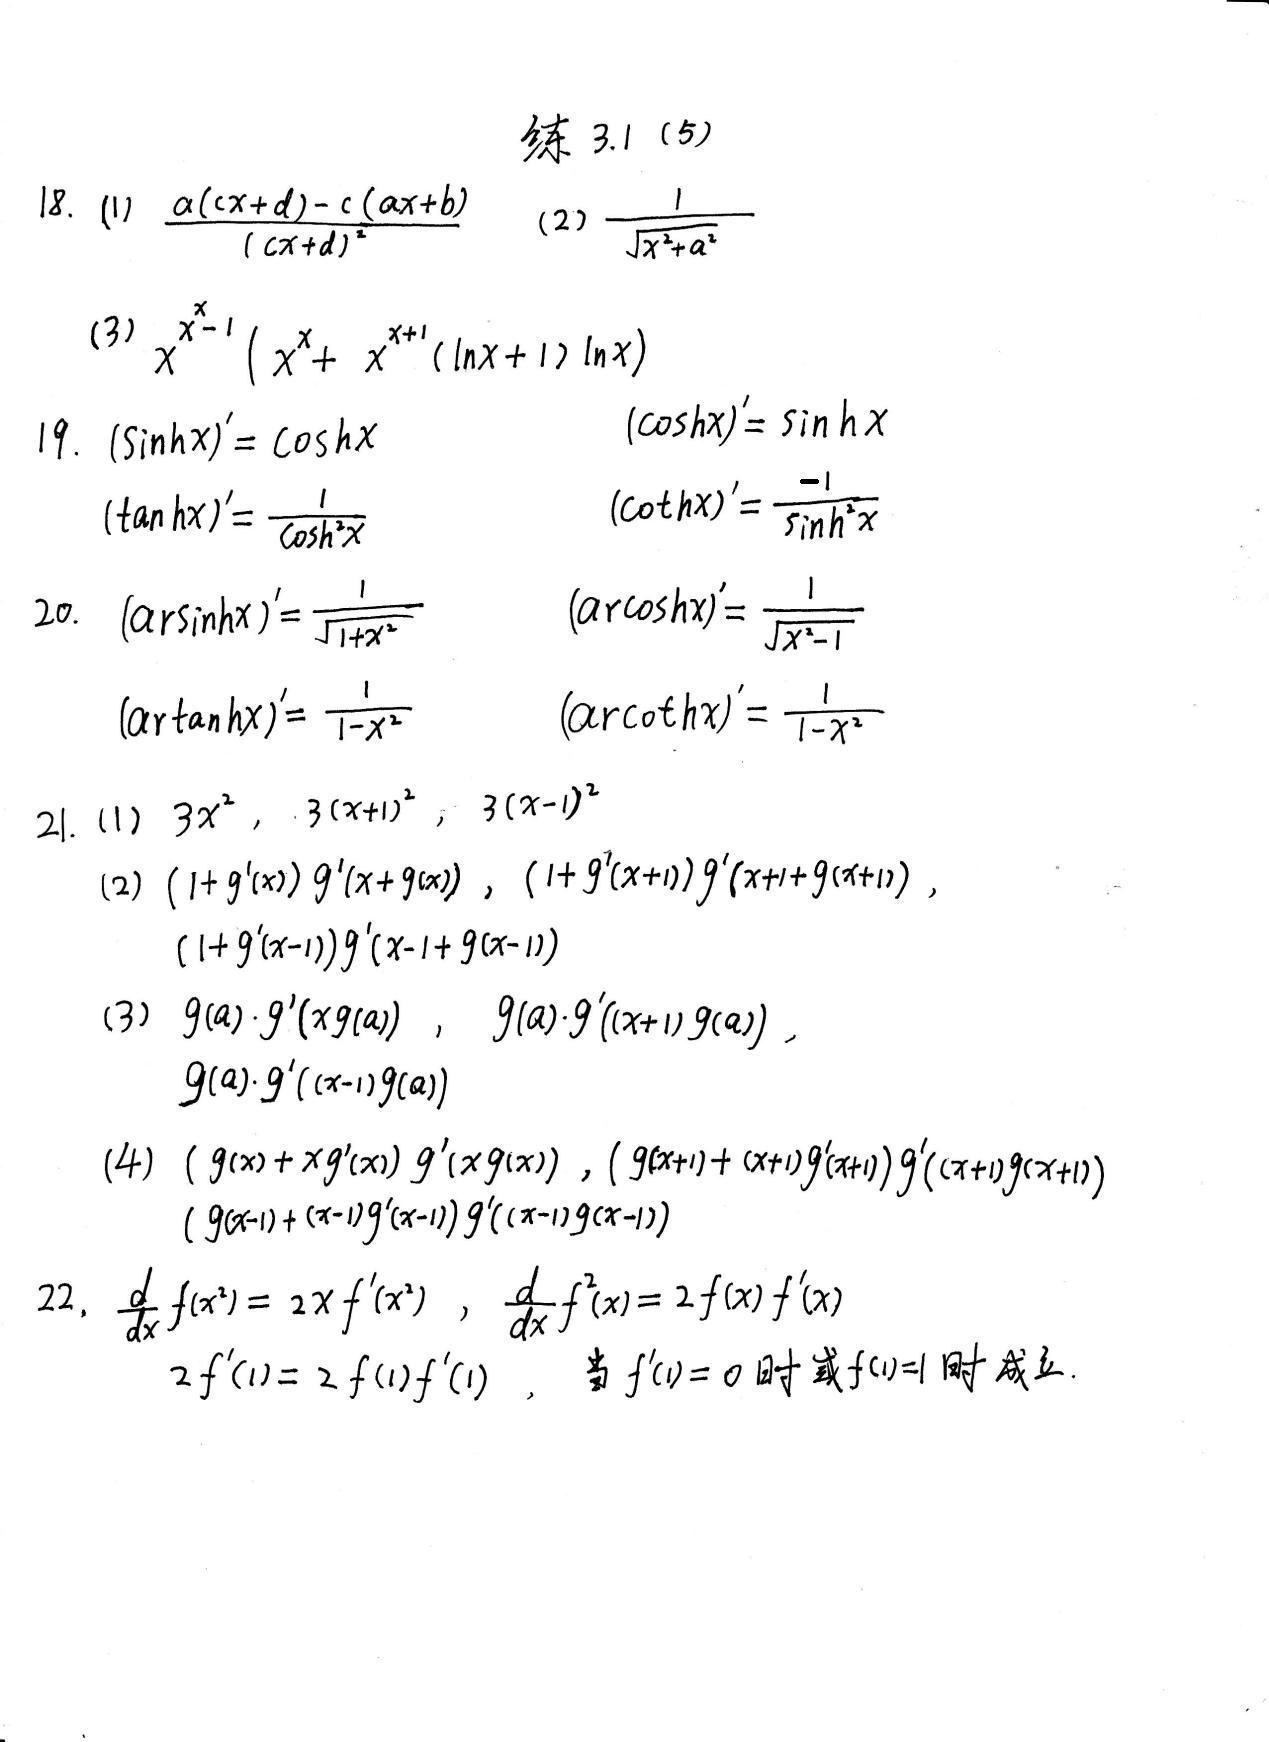 练 3.1 (5)
18. (1) \frac{a(cx+d)-c(ax+b)}{(cx+d)^2} (2) \frac{1}{\sqrt{x^2+a^2}}
(3) x^{x^x-1}(x^x+x^{x+1}(lnx+1)lnx)
19. (sinhx)'=coshx (coshx)'=sinhx
(tanhx)'=\frac{1}{cosh^2x} (cothx)'=\frac{-1}{sinh^2x}
20. (arsinhx)'=\frac{1}{\sqrt{1+x^2}} (arcoshx)'=\frac{1}{\sqrt{x^2-1}}
(artanhx)'=\frac{1}{1-x^2} (arcothx)'=\frac{1}{1-x^2}
21. (1) 3x^2, 3(x+1)^2, 3(x-1)^2
(2) (1+g'(x))g'(x+g(x)), (1+g'(x+1))g'(x+1+g(x+1)),
(1+g'(x-1))g'(x-1+g(x-1))
(3) g(a)·g'(xg(a)), g(a)·g'((x+1)g(a)),
g(a)·g'((x-1)g(a))
(4) (g(x)+xg'(x))g'(xg(x)), (g(x+1)+(x+1)g'(x+1))g'((x+1)g(x+1))
(g(x-1)+(x-1)g'(x-1))g'((x-1)g(x-1))
22. \frac{d}{dx}f(x^2)=2xf'(x^2), \frac{d}{dx}f^2(x)=2f(x)f'(x)
2f'(1)=2f(1)f'(1), 当f'(1)=0时或f(1)=1时成立.